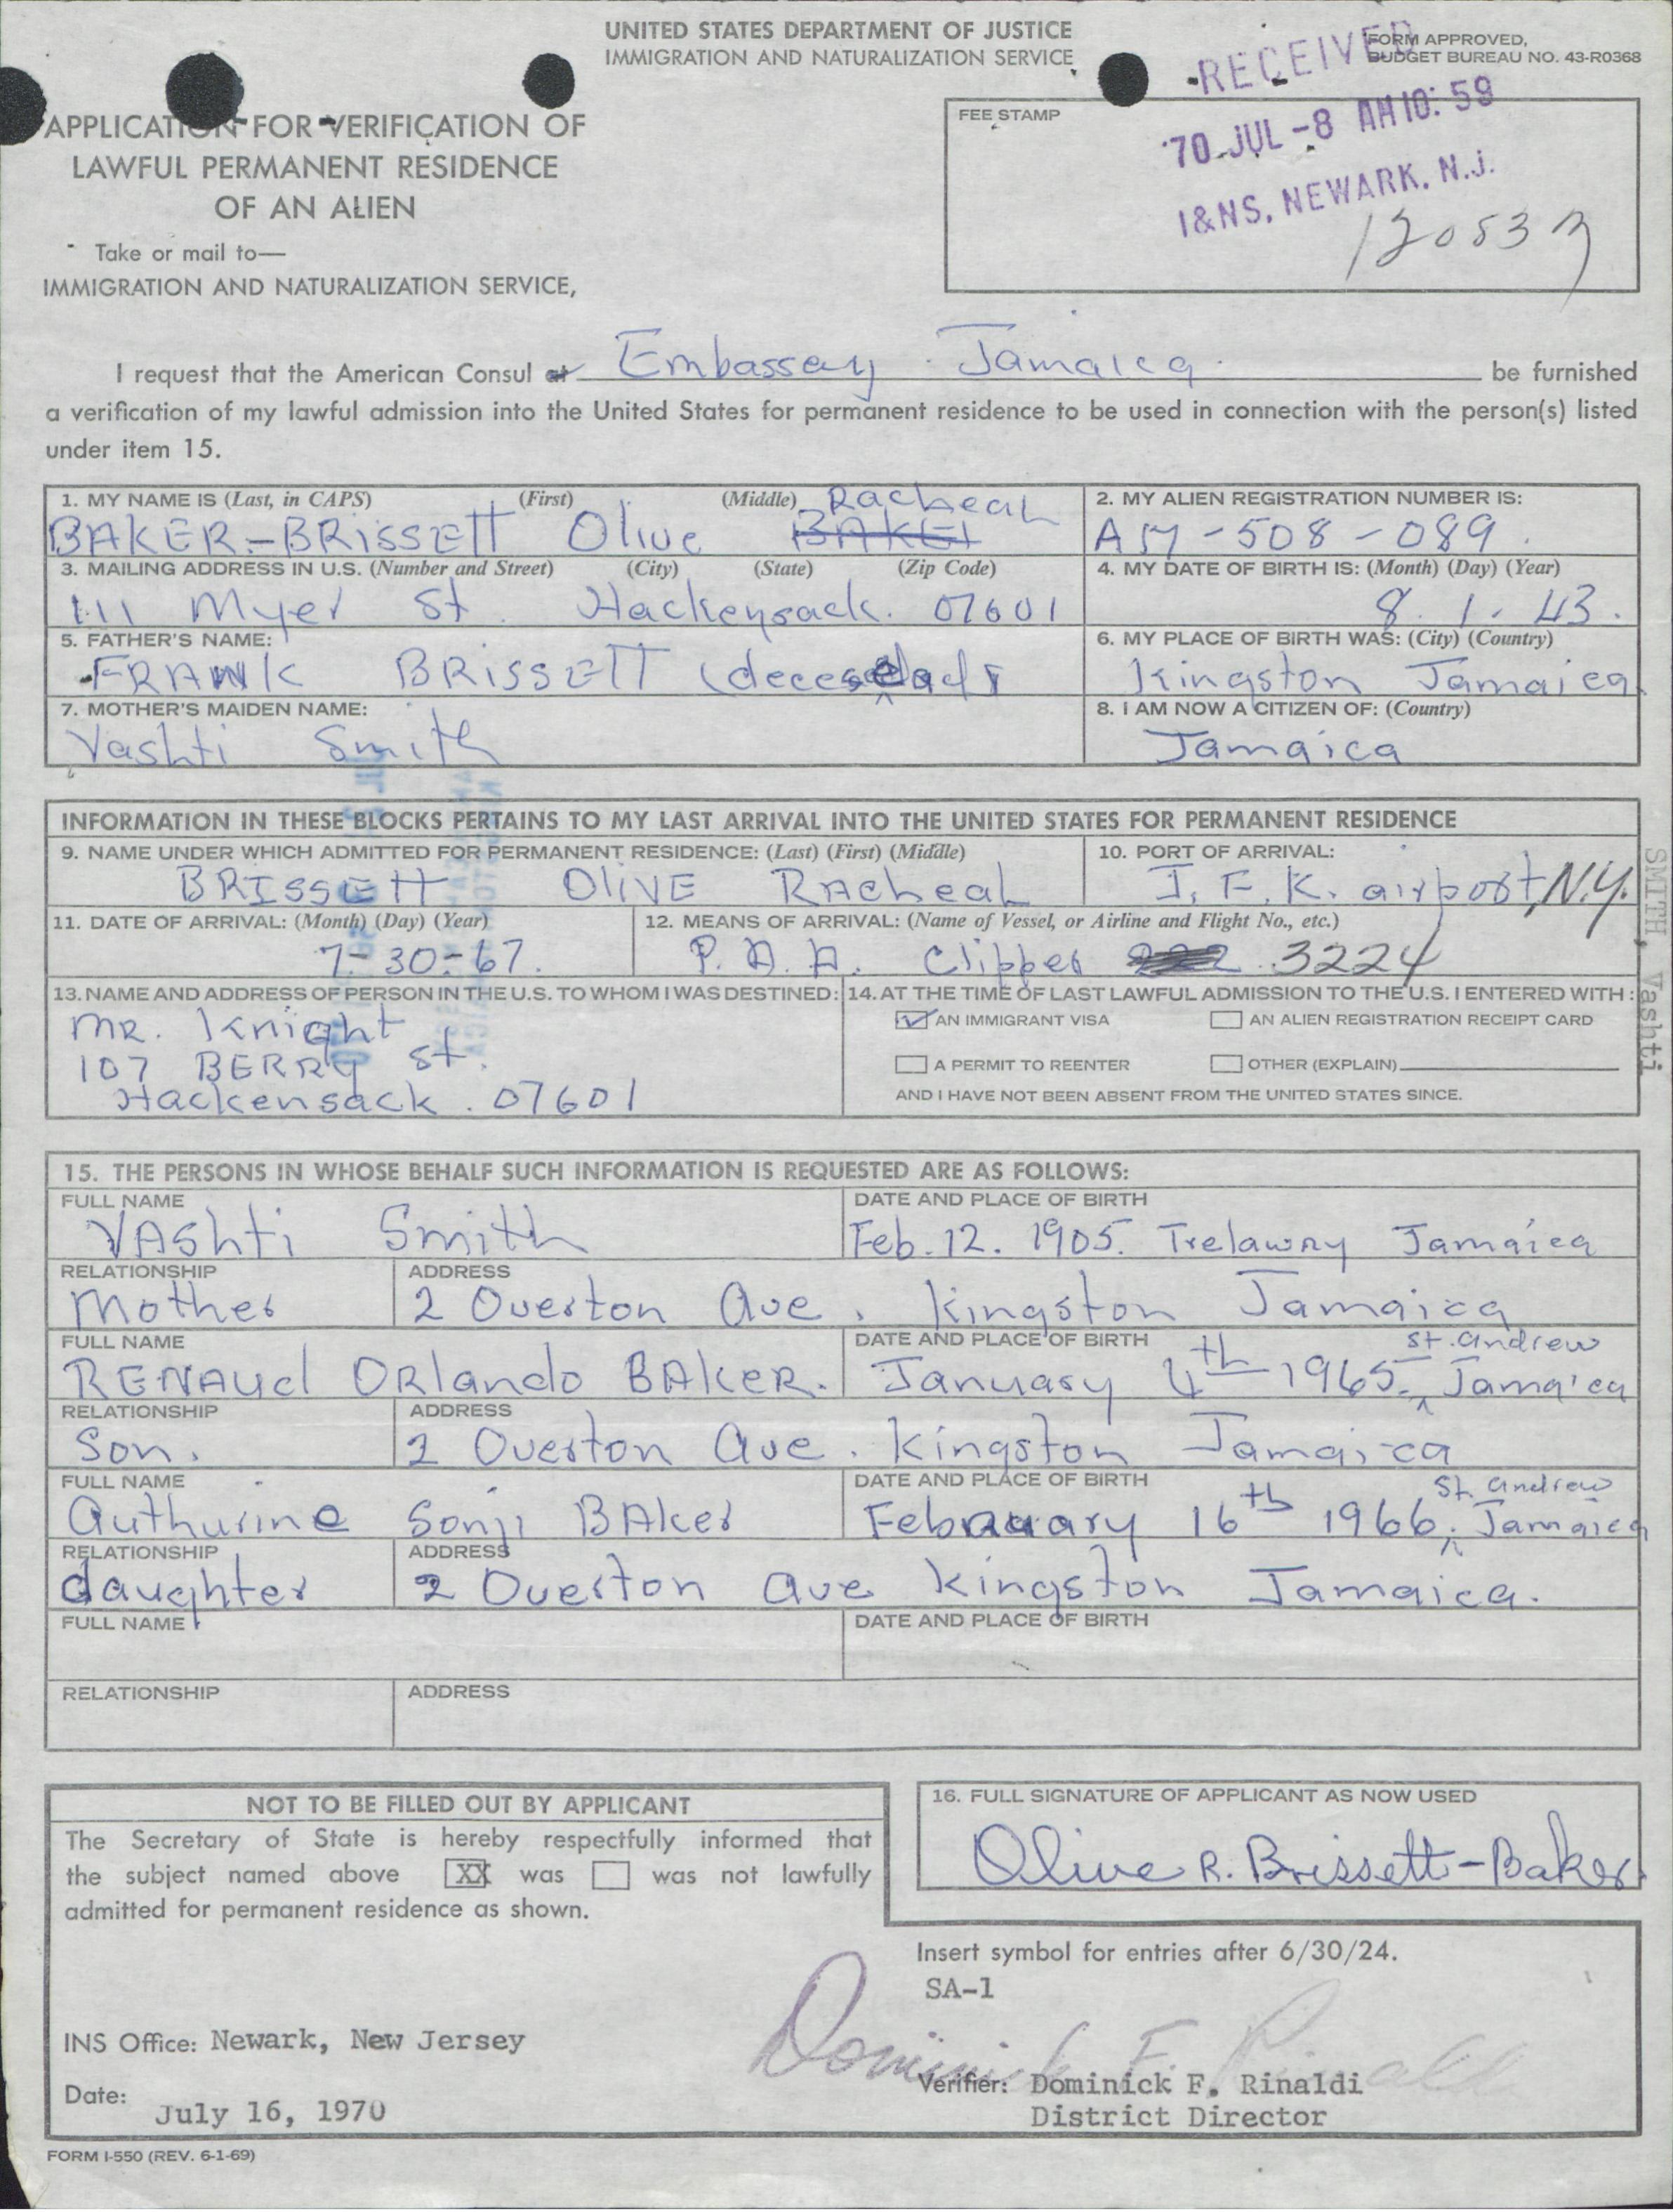 UNITED STATES DEPARTMENT OF JUSTICE
IMMIGRATION AND NATURALIZATION SERVICE
FORM APPROVED,
BUDGET BUREAU NO. 43-R0368
APPLICATION FOR VERIFICATION OF
LAWFUL PERMANENT RESIDENCE
OF AN ALIEN
Take or mail to—
IMMIGRATION AND NATURALIZATION SERVICE,
FEE STAMP
RECEIVED
'70 JUL -8 AM 10: 59
I&NS, NEWARK, N.J.
I request that the American Consul at Embassay Jamaica be furnished
a verification of my lawful admission into the United States for permanent residence to be used in connection with the person(s) listed
under item 15.
1. MY NAME IS (Last, in CAPS) (First) (Middle)
BAKER-BRISSETT Olive Racheal
2. MY ALIEN REGISTRATION NUMBER IS:
A17-508-089.
3. MAILING ADDRESS IN U.S. (Number and Street) (City) (State) (Zip Code)
111 Myer St. Hackensack. 07601
4. MY DATE OF BIRTH IS: (Month) (Day) (Year)
8. 1. 43.
5. FATHER'S NAME:
FRANK BRISSETT
6. MY PLACE OF BIRTH WAS: (City) (Country)
Kingston Jamaica
7. MOTHER'S MAIDEN NAME:
Vashti Smith
8. I AM NOW A CITIZEN OF: (Country)
Jamaica
INFORMATION IN THESE BLOCKS PERTAINS TO MY LAST ARRIVAL INTO THE UNITED STATES FOR PERMANENT RESIDENCE
9. NAME UNDER WHICH ADMITTED FOR PERMANENT RESIDENCE: (Last) (First) (Middle)
BRISSETT OLIVE RAcheaL
10. PORT OF ARRIVAL:
J. F. K. airport, N.Y.
11. DATE OF ARRIVAL: (Month) (Day) (Year)
7-30-67.
12. MEANS OF ARRIVAL: (Name of Vessel, or Airline and Flight No., etc.)
P. A. A. Clipper 3224
13. NAME AND ADDRESS OF PERSON IN THE U.S. TO WHOM I WAS DESTINED:
MR. Knight
107 BERRY St.
Hackensack. 07601
14. AT THE TIME OF LAST LAWFUL ADMISSION TO THE U.S. I ENTERED WITH:
AN IMMIGRANT VISA
AN ALIEN REGISTRATION RECEIPT CARD
A PERMIT TO REENTER
OTHER (EXPLAIN)
AND I HAVE NOT BEEN ABSENT FROM THE UNITED STATES SINCE.
SMITH, Vashti
15. THE PERSONS IN WHOSE BEHALF SUCH INFORMATION IS REQUESTED ARE AS FOLLOWS:
FULL NAME
VAShti Smith
DATE AND PLACE OF BIRTH
Feb. 12. 1905. Trelawny Jamaica
RELATIONSHIP
Mother
ADDRESS
2 Overton Ave. Kingston Jamaica
FULL NAME
RENAUd ORlando BAKER.
DATE AND PLACE OF BIRTH
January 4th 1965. St. Andrew Jamaica
RELATIONSHIP
Son.
ADDRESS
2 Overton Ave. Kingston Jamaica
FULL NAME
Authurine Sonji BAker
DATE AND PLACE OF BIRTH
February 16th 1966. St. Andrew Jamaica
RELATIONSHIP
daughter
ADDRESS
2 Overton Ave Kingston Jamaica.
FULL NAME
DATE AND PLACE OF BIRTH
RELATIONSHIP
ADDRESS
NOT TO BE FILLED OUT BY APPLICANT
The Secretary of State is hereby respectfully informed that
the subject named above XX was was not lawfully
admitted for permanent residence as shown.
16. FULL SIGNATURE OF APPLICANT AS NOW USED
Olive R. Brissett-Baker.
Insert symbol for entries after 6/30/24.
SA-1
INS Office: Newark, New Jersey
Dominick F. Rinaldi
Verifier: Dominick F. Rinaldi
District Director
Date: July 16, 1970
FORM I-550 (REV. 6-1-69)